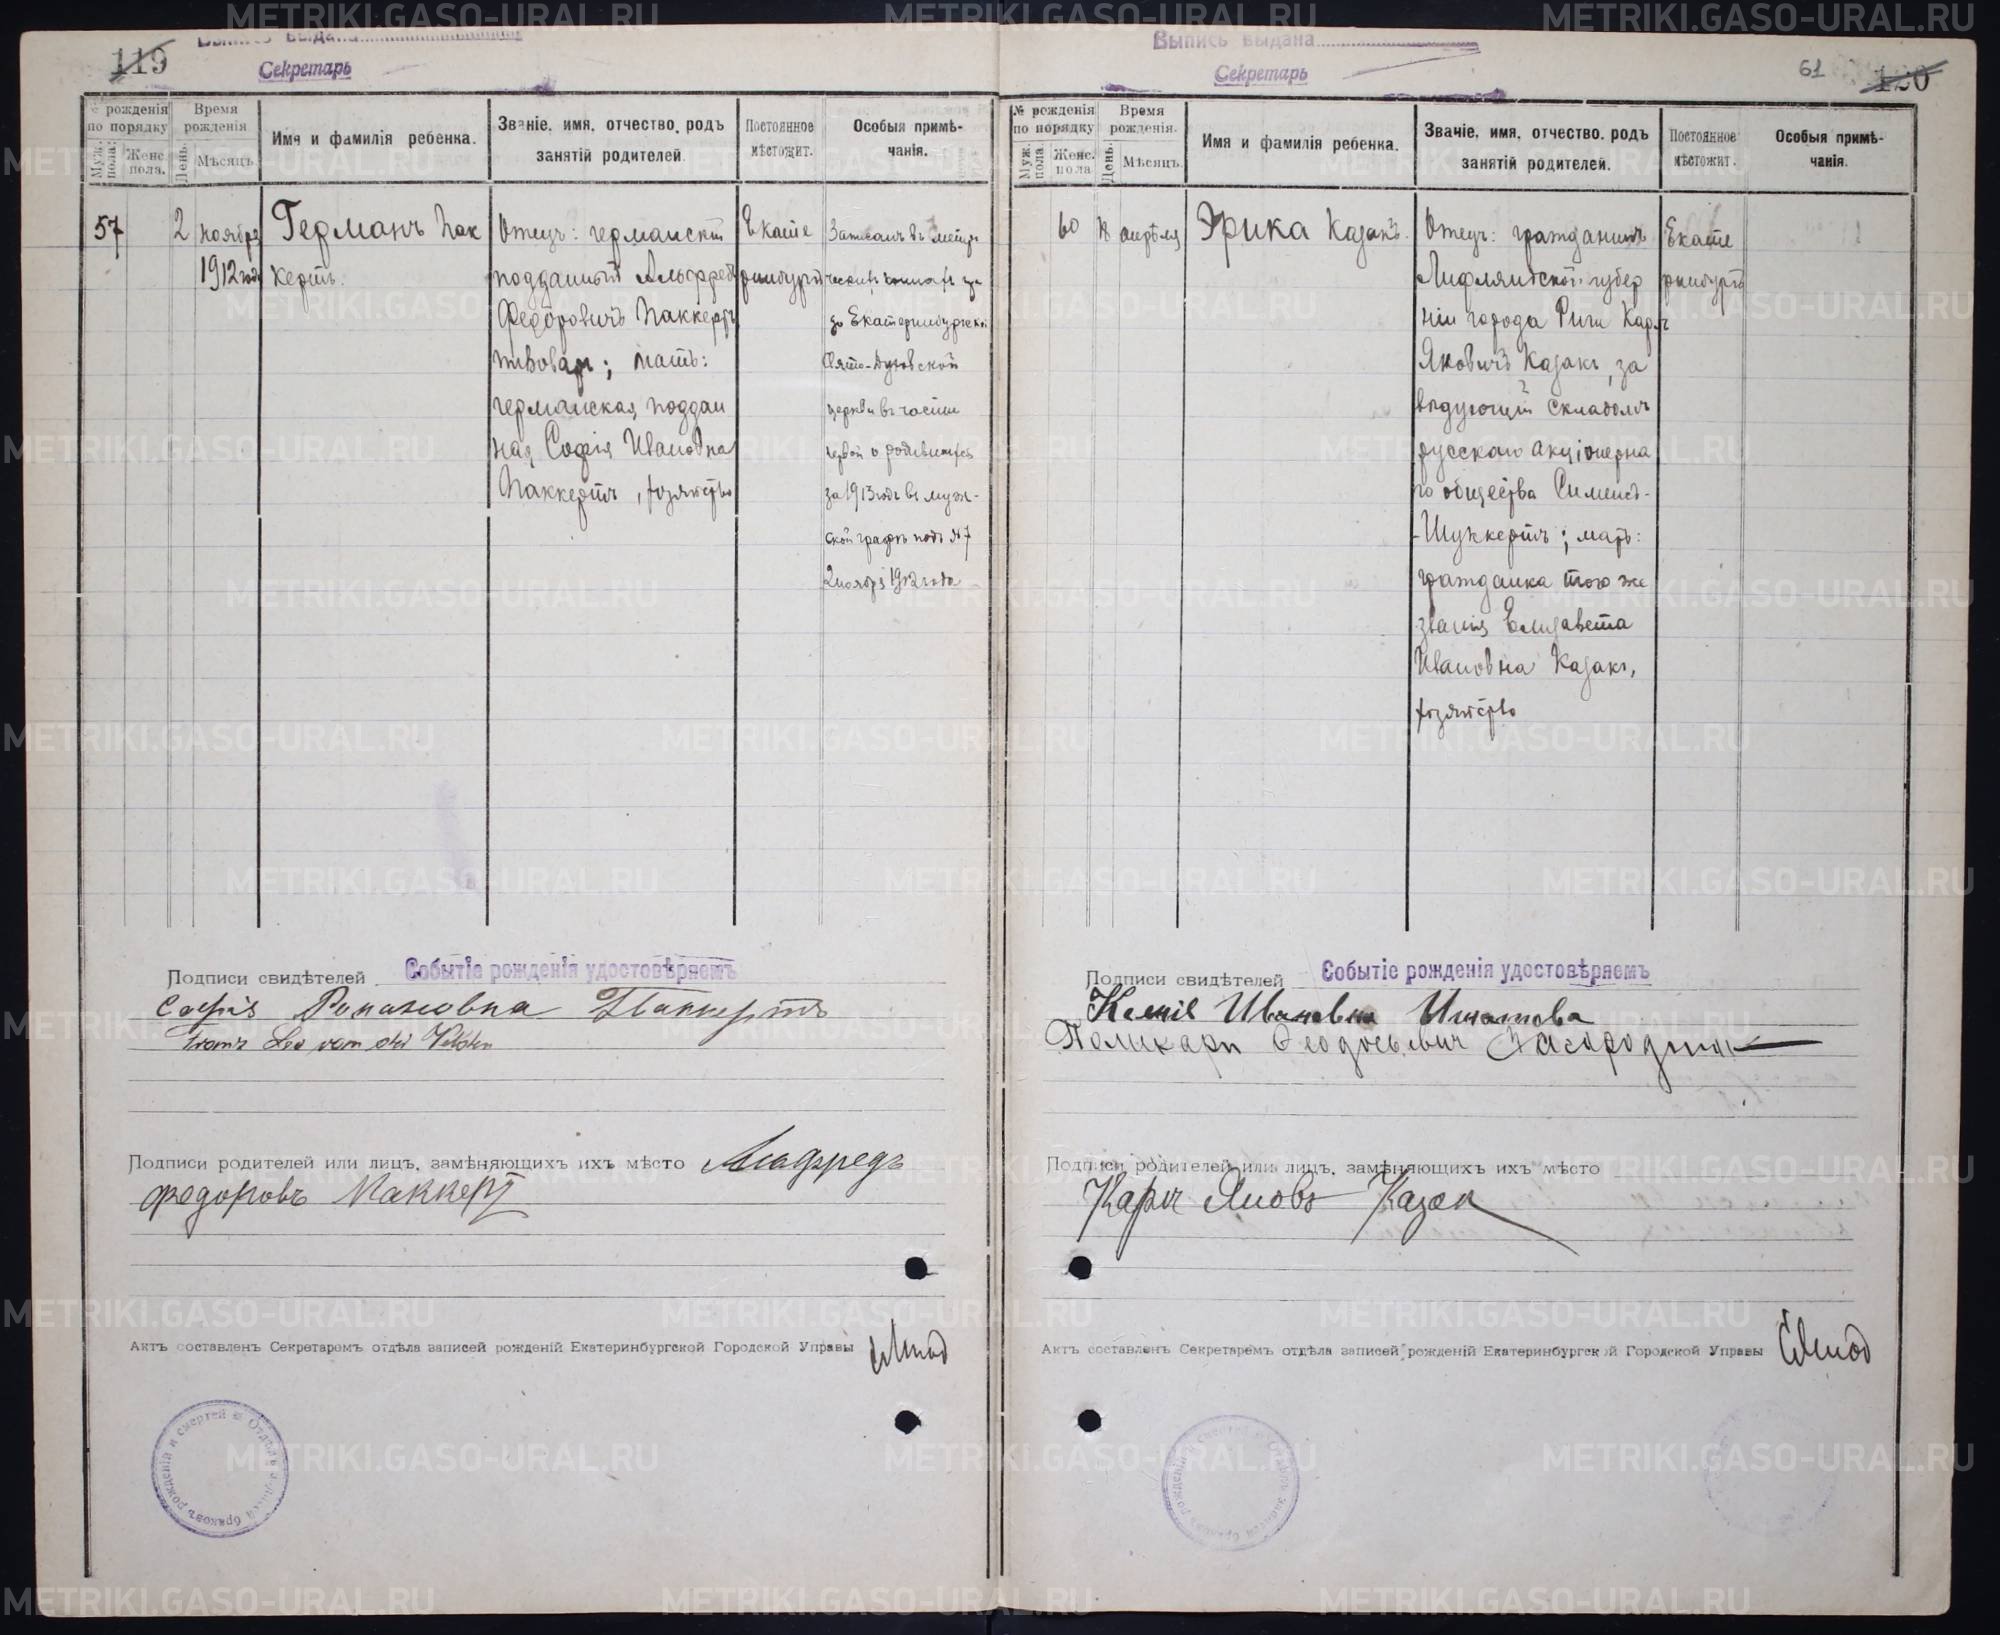 119
Выпись выдана
Секретарь
№ рожденія по порядку
Муж. пола.
Женс. пола.
Время рожденія
День.
Мѣсяцъ
Имя и фамилія ребенка.
Званіе, имя, отчество, родъ занятій родителей.
Постоянное мѣстожит.
Особыя примѣчанія.
57
2
ноября
1912 года
Германъ Пак
кертъ.
Отецъ: германскій
подданный Альфредъ
Федоровичъ Паккертъ
пивоваръ; мать:
германская поддан
ная Софія Ивановна
Паккертъ, хозяйство
Екате
ринбургъ
Записанъ въ метри
ческихъ книгахъ
Екатеринбургской
Свято-Духовской
церкви въ части
первой о родившихся
за 1913 годъ въ муж-
ской графѣ подъ №7
2 ноября 1912 года
Подписи свидѣтелей
Событіе рожденія удостовѣряемъ
Софія Романовна Паккертъ
Franz Leo von der Velden
Подписи родителей или лицъ, замѣняющихъ ихъ мѣсто Альфредъ
Федоровъ Паккерт
Актъ составленъ Секретаремъ отдѣла записей рожденій Екатеринбургской Городской Управы
Выпись выдана
Секретарь
61
120
№ рожденія по порядку
Муж. пола
Женс. пола
Время рожденія.
День.
Мѣсяцъ.
Имя и фамилія ребенка.
Званіе, имя, отчество, родъ занятій родителей.
Постоянное мѣстожит.
Особыя примѣчанія.
60
апрѣля
Эрика Казакъ.
Отецъ: гражданинъ
Лифляндской губер
ніи города Риги Карлъ
Яковичъ Казакъ, за
вѣдующій складомъ
русскаго акціонерна
го общества Сименсъ-
-Шуккертъ; мать:
гражданка того же
званія Елизавета
Ивановна Казакъ,
хозяйство
Екате
ринбургъ
Подписи свидѣтелей
Событіе рожденія удостовѣряемъ
Ксенія Ивановна Игнатова
Поликарп Феодосьевич Загородник
Подписи родителей или лицъ, замѣняющихъ ихъ мѣсто
Карлъ Яковъ Казак
Актъ составленъ Секретаремъ отдѣла записей рожденій Екатеринбургской Городской Управы
METRIKI.GASO-URAL.RU